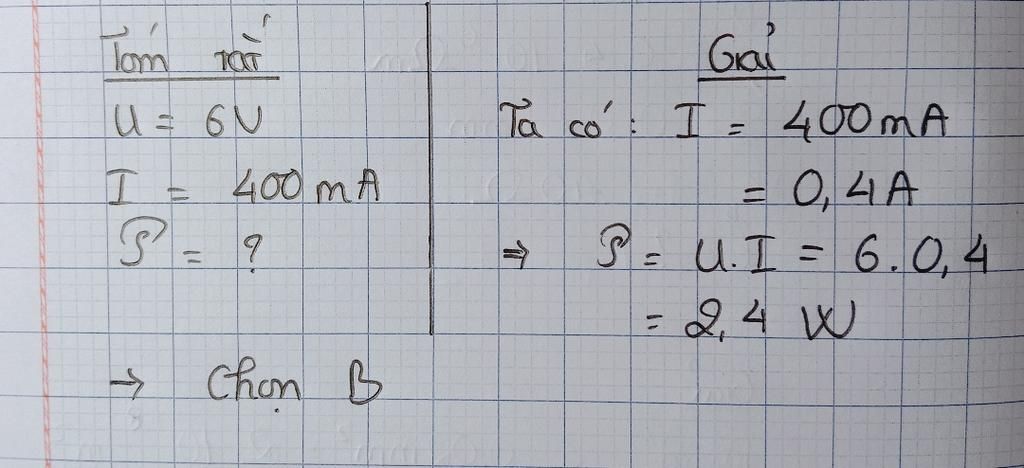 Tóm tắt
U = 6V
I = 400mA
P = ?
Giải
Ta có: I = 400mA
= 0,4A
⇒ P = U.I = 6.0,4
= 2,4 W
→ Chọn B